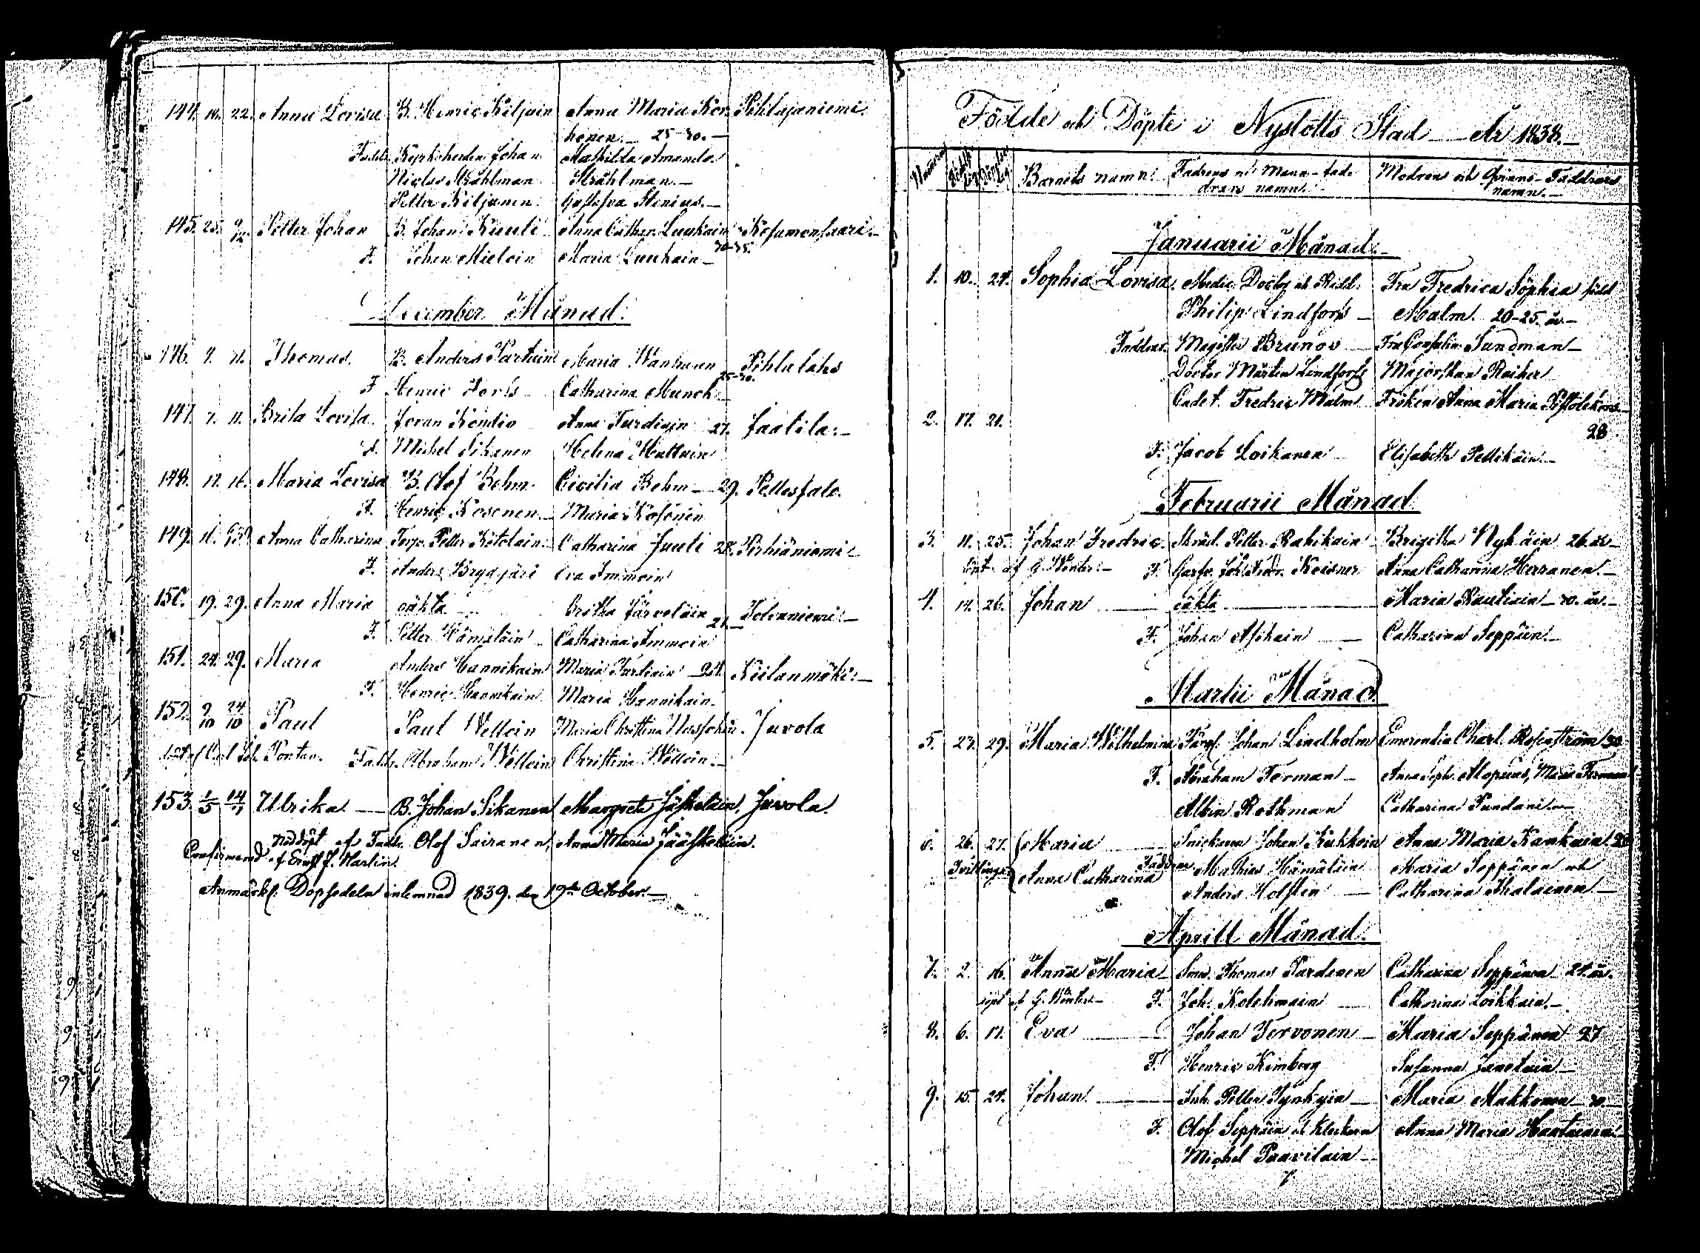 144. 10. 22. Anna Lovisa B. Henric Kiljuin Anna Maria Kor- Pihlajaniemi
honen 25-30.
Johan Mathilda Amanda
Niclas Stråhlman Stråhlman.
Petter Kiljunen Gustafva Stenius.
145. 25. Petter Johan B. Johan Kuuli Anna Cathar. Luukain Kosamonsaari
F. Johan Mieloin Maria Luukain
December Månad.
146. Thomas. B. Anders Partain Maria Wanhanen Pihlalaks
F. Henric Catharina Munck 25-30.
147. 7. 11. Brita Lovisa Kondio Anna Turdiain 27. Jaatila.
F. Michel Sikanen Helena
148. 11. 16. Maria Lovisa B. Olof Behm. Cicilia Behm 29. Pellossalo.
F. Henric Kosonen Maria Kosonen
149. Anna Catharina Petter Kotolain Catharina Juuti 28. Pirhiäniemi
F. Anders Eva Immoin
150. 19. 29. Anna Maria oäkta Tolvaniemi
F. Petter Hämäläin Catharina Immoin
151. 24. 29. Maria Anders Hannikain Maria Turtiain 24. Kiilanmäki
F. Henric Hannikain Maria Hannikain.
152. 9/10 24/10 Paul Paul Welloin Maria Christina Juvola
Döpt af Carl Joh. Pontan. Fadd. Abraham Welloin Christina Welloin
153. Ulrika B. Johan Sikanen Margreta Jääskeläin Juvola.
Nöddöpt af Fadd. Olof Sairanen, Anna Maria Jääskeläin.
Confirmerad af J. Martin
Anmärk. Döpsedeln inlemnad 1839. den 19de October.
Födde och Döpte i Nyslotts Stad År 1838.
Barnets namn. Fadrens och Mans-fad- Modrens och Qvinns-Faddrars
drars namn. namn.
Januarii Månad.
1. 10. 24. Sophia Lovisa Medic. Doctor och Ridd. Fru Fredrica Sophia född
Philip Lindfors Malm. 20-25. år
Faddrar Magister Brunov Sundman
Doctor Mårten Lindfors Majorskan Reiher
Cadet. Fredric Malm Fröken Anna Maria Pistolekors
2. 17. 21.
28
F. Jacob Loikanen Elisabeth Pellikäin
Februarii Månad
3. 11. 25. Johan Fredric Skräd. Petter Rahikain Brigitha Nykäin 26. år
Döpt af G. Winter F. Garfv. Joh. Fredr. Anna Catharina Herranen
4. 14. 26. Johan oäkta Maria Rautiain 30. år
F. Johan Asikain Catharina Seppäin
Martii Månad
5. 23. 29. Maria Wilhelmina Färg. Johan Lindholm Emerentia Charl. Rosenström 30
F. Abraham Forman Anna Soph. Alopeus, Maria Forman
Albin Rothman Catharina Pundani
6. 26. 27. Maria Snickaren Johan Kukkoin Anna Maria Kankain 28
Tvillingar Anna Catharina Faddrar Mathias Hämäläin Maria Seppänen och
Anders Holstin Catharina Ihalainen
Aprill Månad.
7. 2. 16. Anna Maria Smed. Thomas Pardanen Catharina Seppänen 24. år.
döpt af G. Winter F. Joh. Kolehmain Catharina Loikkain
8. 6. 17. Eva Johan Torvonen Maria Seppänen 27
F. Henric Kimberg Susanna
9. 15. 24. Johan Inh. Petter Tynkyin Maria Makkonen 30
F. Olof Seppäin och Klockarn Anna Maria Hartunen
Michel Paavilain